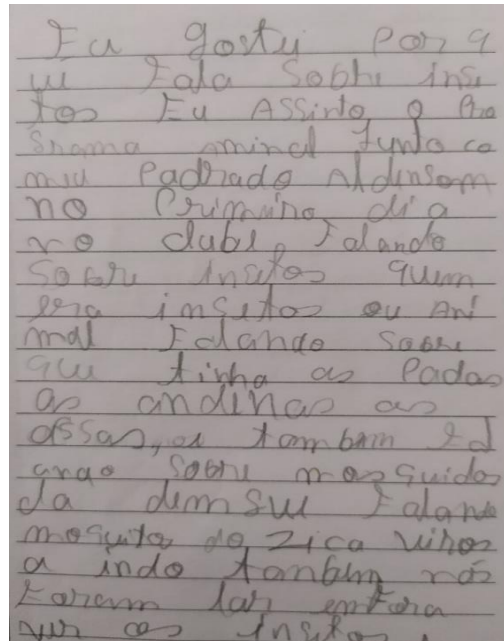 Eu gosti porq
ui Fala Sobri inse
tos Eu Assinto o Pro
grama aminal Junto co
miu Padrado Aldinsom
no Primuino dia
no clube, Falando
Sobri insetos quem
era insetos ou Ani
mal Falando Sobri
qui tinha as Padas
as andinas as
assas, e tambem Fal
ando Sobri mosquidos
da dimsui Falano
mosquitos do Zica viros
a indo tambem nós
Foram las emfora
ver os insetos